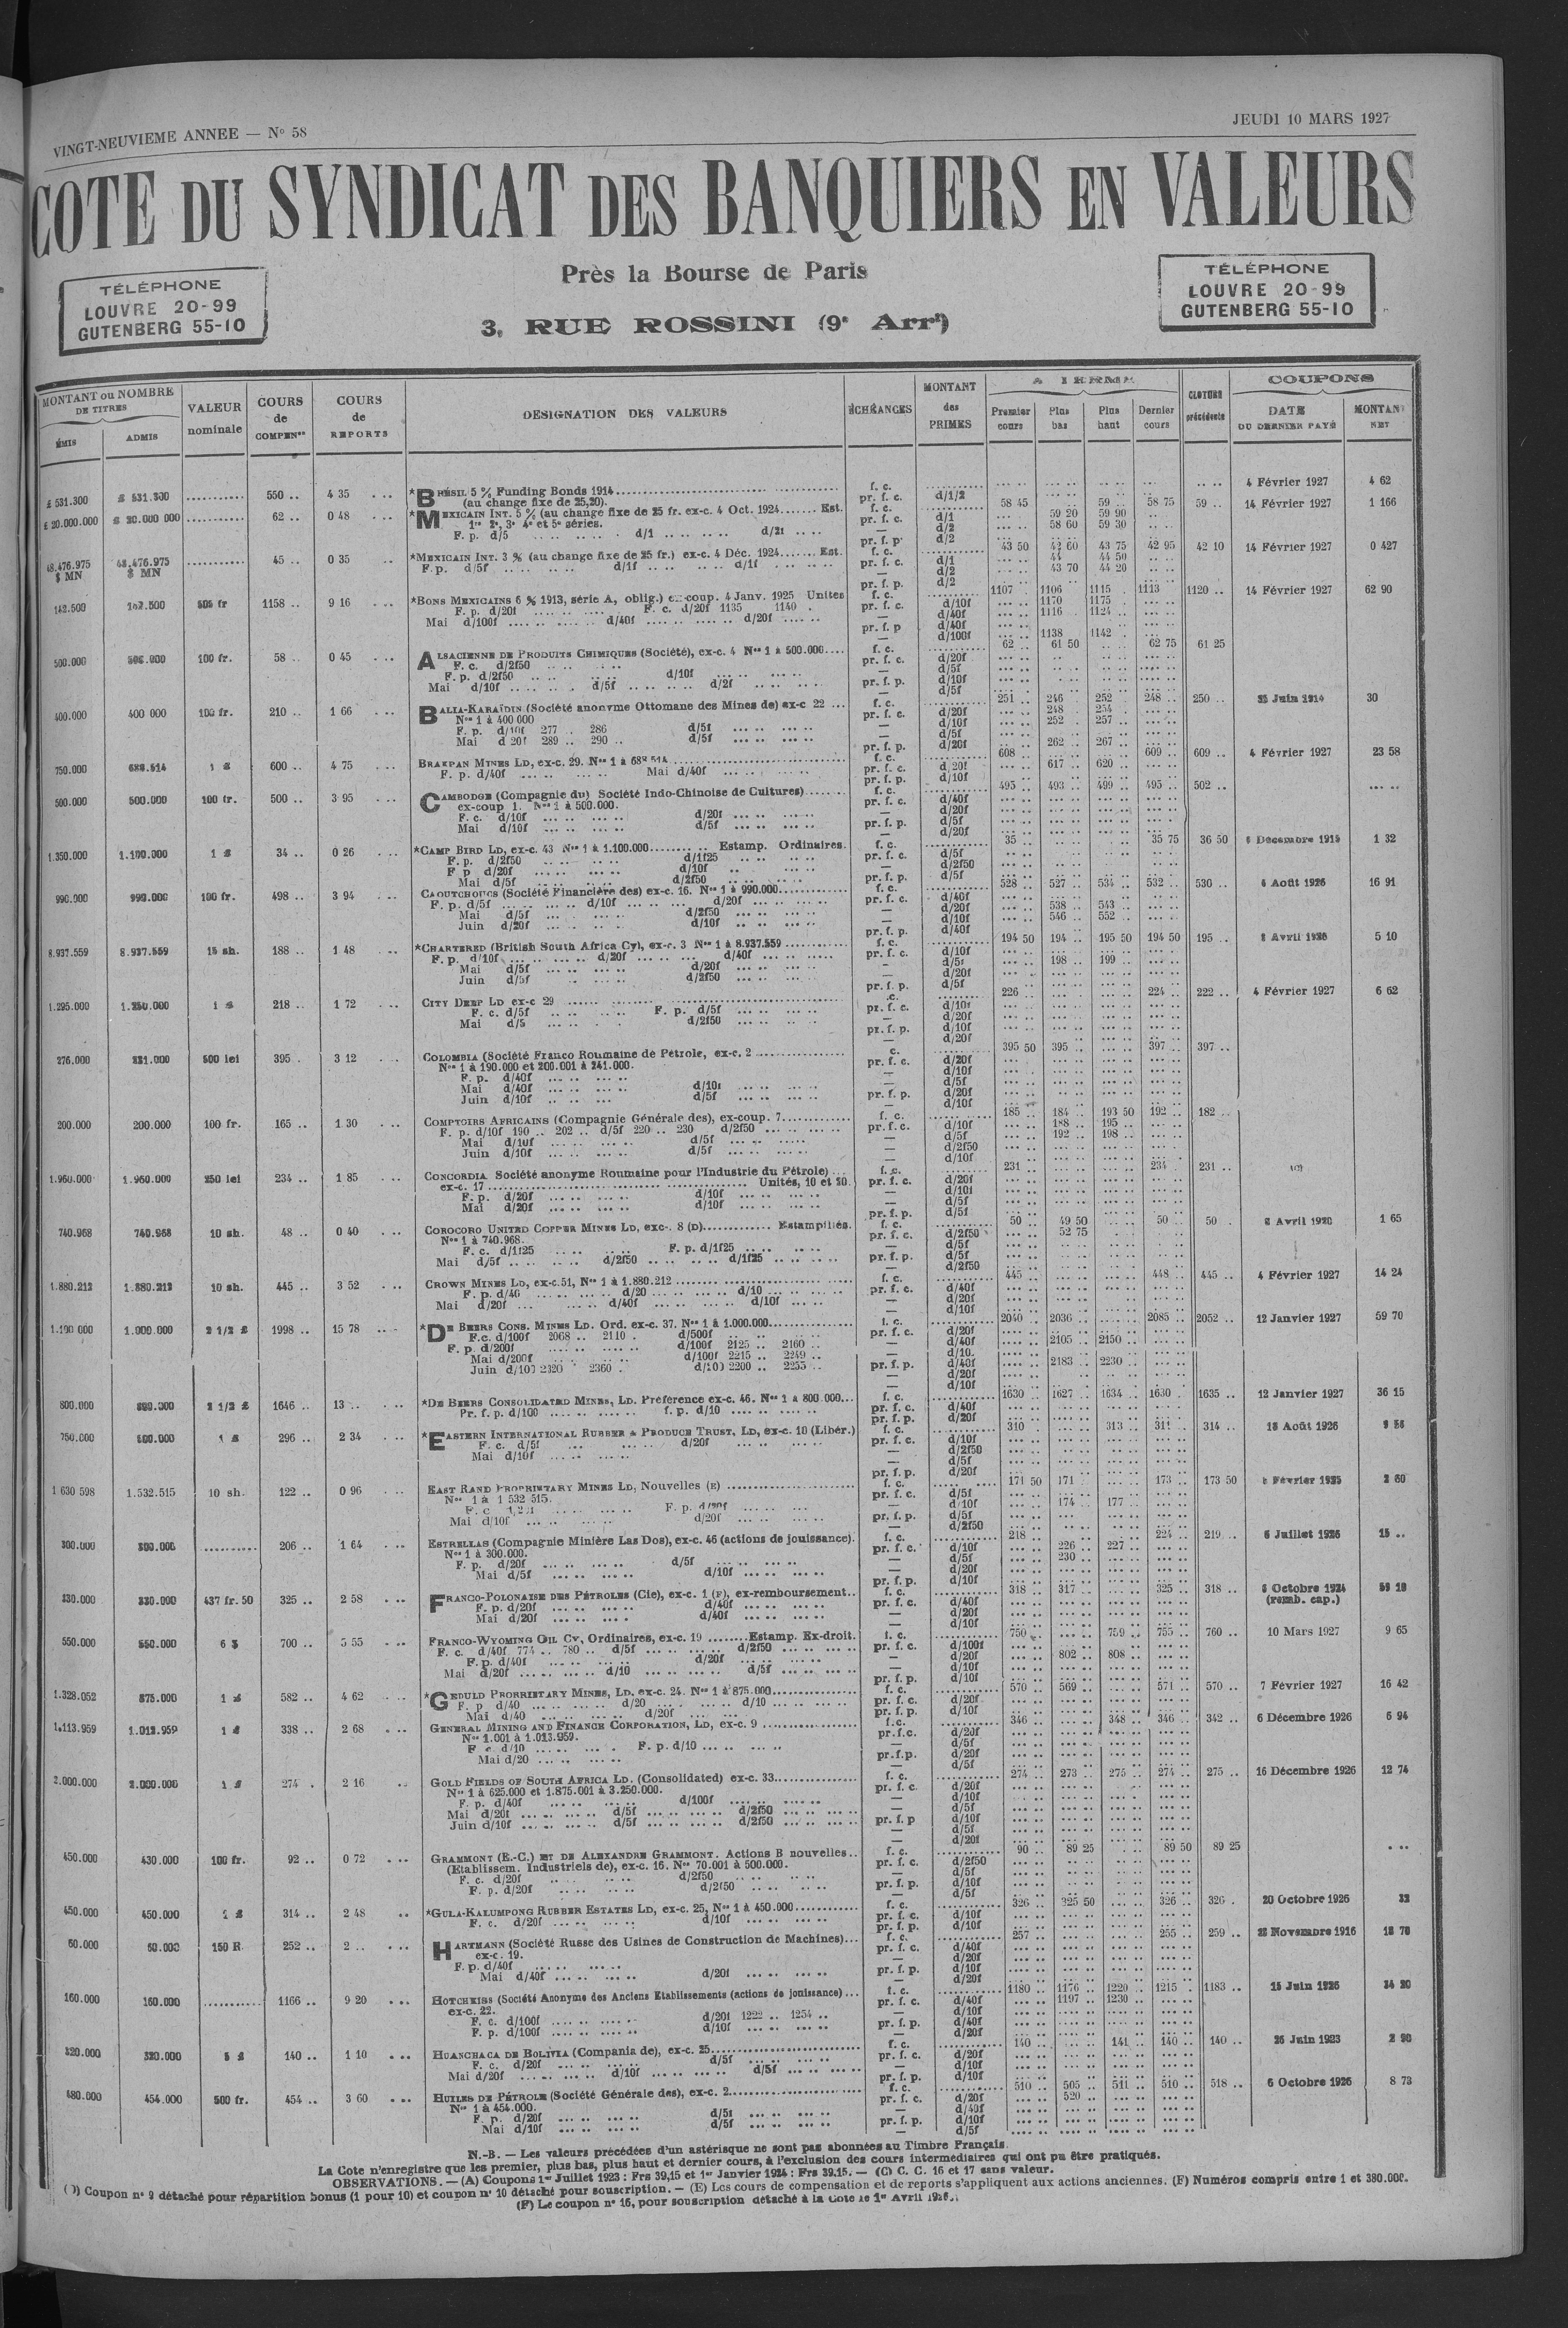 VINGT-NEUVIEME ANNEE — N° 58
JEUDI 10 MARS 1927
COTE DU SYNDICAT DES BANQUIERS EN VALEURS
Près la Bourse de Paris
3, RUE ROSSINI (9e Arrt)
TÉLÉPHONE
LOUVRE 20-99
GUTENBERG 55-10
TÉLÉPHONE
LOUVRE 20-99
GUTENBERG 55-10
MONTANT ou NOMBRE DE TITRES
ÉMIS ADMIS
VALEUR nominale
COURS de COMPENon
COURS de REPORTS
DESIGNATION DES VALEURS
ÉCHÉANCES
MONTANT des PRIMES
A TERME
Premier cours Plus bas Plus haut Dernier cours
CLOTURE précédente
COUPONS
DATE DU DERNIER PAYÉ
MONTANT NET
£ 531.300 £ 531.300 550 .. 4 35 *BRÉSIL 5 % Funding Bonds 1914 f. c. 4 Février 1927 4 62
(au change fixe de 25,20). pr. f. c. d/1/2
£ 20.000.000 £ 20.000 000 62 .. 0 48 *MEXICAIN INT. 5 % (au change fixe de 25 fr. ex-c. 4 Oct. 1924 Est. f. c. 58 45 59 .. 58 75 59 .. 14 Février 1927 1 166
1re 2e, 3e 4e et 5e séries. pr. f. c. d/1 59 20 59 90
F. p. d/5 d/1 d/2f — d/2 58 60 59 30
48.476.975 $ MN 48.476.975 $ MN 45 .. 0 35 *MEXICAIN INT. 3 % (au change fixe de 25 fr.) ex-c. 4 Déc. 1924 Est. f. c. 43 50 42 60 43 75 42 95 42 10 14 Février 1927 0 427
F. p. d/5f d/1f d/1f pr. f. c. d/1 44 44 50
d/2 43 70 44 20
142.500 142.500 505 fr 1158 .. 9 16 *BONS MEXICAINS 6 % 1913, série A, oblig.) ex-coup. 4 Janv. 1925 Unités f. c. 1107 1106 1115 1113 1120 .. 14 Février 1927 62 90
F. p. d/20f F. c. d/20f 1135 1140 pr. f. c. d/10f 1170 1175
Mai d/100f d/40f d/20f — d/40f 1116 1124
pr. f. p d/40f
— d/100f 1138 1142
500.000 500.000 100 fr. 58 .. 0 45 ALSACIENNE DE PRODUITS CHIMIQUES (Société), ex-c. 4 Nos 1 à 500.000 f. c. 62 .. 61 50 62 75 61 25
F. c. d/2f50 pr. f. c. d/20f
F. p. d/2f50 d/10f — d/5f
Mai d/10f d/5f d/2f pr. f. p. d/10f
— d/5f
400.000 400 000 100 fr. 210 .. 1 66 BALIA-KARAÏDIN (Société anonyme Ottomane des Mines de) ex-c 22 f. c. 251 246 252 248 250 .. 25 Juin 1914 30
Nos 1 à 400 000 pr. f. c. d/20f 248 254
F. p. d/10f 277 286 d/5f — d/10f 252 257
Mai d 20f 289 .. 290 .. d/5f — d/5f
pr. f. p. d/20f 262 267
750.000 688.514 1 £ 600 .. 4 75 BRAKPAN MINES LD, ex-c. 29. Nos 1 à 688 514 f. c. 608 609 609 .. 4 Février 1927 23 58
F. p. d/40f Mai d/40f pr. f. c. d 20f 617 620
pr. f. p. d/10f
500.000 500.000 100 fr. 500 .. 3 95 CAMBODGE (Compagnie du) Société Indo-Chinoise de Cultures) f. c. 495 493 499 495 502 ..
ex-coup 1. Nos 1 à 500.000. pr. f. c. d/40f
F. c. d/10f d/20f — d/20f
Mai d/10f d/5f pr. f. p. d/5f
— d/20f
1.350.000 1.100.000 1 £ 34 .. 0 26 *CAMP BIRD LD, ex-c. 43 Nos 1 à 1.100.000 Estamp. Ordinaires. f. c. 35 .. 35 75 36 50 6 Décembre 1919 1 32
F. p. d/2f50 d/1f25 pr. f. c. d/5f
F p d/20f d/10f — d/2f50
Mai d/5f d/2f50 pr. f. p. d/5f
990.000 990.000 100 fr. 498 .. 3 94 CAOUTCHOUCS (Société Financière des) ex-c. 16. Nos 1 à 990.000 f. c. 528 527 534 532 530 .. 6 Août 1926 16 91
F. p. d/5f d/10f d/20f pr. f. c. d/40f
Mai d/5f d/2f50 — d/20f 538 543
Juin d/20f d/10f — d/10f 546 552
pr. f. p. d/40f
8.937.559 8.937.559 15 sh. 188 .. 1 48 *CHARTERED (British South Africa Cy), ex-c. 3 Nos 1 à 8.937.559 f. c. 194 50 194 195 50 194 50 195 .. 8 Avril 1926 5 10
F. p. d/10f d/20f d/40f pr. f. c. d/10f
Mai d/5f d/20f — d/5f 198 199
Juin d/5f d/2f50 — d/20f
pr. f. p. d/5f
1.295.000 1.250.000 1 £ 218 .. 1 72 CITY DEEP LD ex-c 29 226 224 222 .. 4 Février 1927 6 62
F. c. d/5f F. p. d/5f pr. f. c. d/10f
Mai d/5 d/2f50 — d/20f
pr. f. p. d/10f
— d/20f
276.000 231.000 500 lei 395 . 3 12 COLOMBIA (Société Franco Roumaine de Pétrole, ex-c. 2 395 50 395 397 397 ..
Nos 1 à 190.000 et 200.001 à 241.000. pr. f. c. d/20f
F. p. d/40f — d/10f
Mai d/40f d/10f — d/5f
Juin d/10f d/5f pr. f. p. d/20f
— d/10f
200.000 200.000 100 fr. 165 .. 1 30 COMPTOIRS AFRICAINS (Compagnie Générale des), ex-coup. 7 f. c. 185 184 193 50 192 182 ..
F. p. d/10f 190 .. 202 .. d/5f 220 .. 230 d/2f50 pr. f. c. d/10f 188 195
Mai d/10f d/5f — d/5f 192 198
Juin d/10f d/5f — d/2f50
— d/10f
1.960.000 1.960.000 250 lei 234 .. 1 85 CONCORDIA Société anonyme Roumaine pour l'Industrie du Pétrole) f. c. 231 234 231 .. (C)
ex-c. 17 Unités, 10 et 20. pr. f. c. d/20f
F. p. d/20f d/10f — d/10f
Mai d/20f d/10f — d/5f
pr. f. p. d/5f
740.968 740.968 10 sh. 48 .. 0 40 COROCORO UNITED COPPER MINES LD, exc-. 8 (D) Estampillés. f. c. 50 49 50 50 50 . 8 Avril 1920 1 65
Nos 1 à 740.968. pr. f. c. d/2f50 52 75
F. c. d/1f25 F. p. d/1f25 — d/5f
Mai d/5f d/2f50 d/1f25 pr. f. p. d/5f
— d/2f50
1.880.212 1.880.212 10 sh. 445 .. 3 52 CROWN MINES LD, ex-c.51, Nos 1 à 1.880.212 f. c. 445 448 445 .. 4 Février 1927 14 24
F. p. d/40 d/20 d/10 pr. f. c. d/40f
Mai d/20f d/40f d/10f — d/20f
— d/10f
1.100 000 1.000.000 2 1/2 £ 1998 .. 15 78 *DE BEERS CONS. MINES LD. Ord. ex-c. 37. Nos 1 à 1.000.000 f. c. 2040 2036 2085 2052 .. 12 Janvier 1927 59 70
F.c. d/100f 2068 .. 2110 . d/500f pr. f. c. d/20f
F. p. d/200f d/100f 2125 .. 2160 .. — d/40f 2105 2150
Mai d/200f d/100f 2215 .. 2249 .. — d/10.
Juin d/100 2320 2360 d/100 2200 .. 2255 .. pr. f. p. d/40f 2183 2230
— d/20f
— d/10f
800.000 800.000 2 1/2 £ 1646 .. 13 .. *DE BEERS CONSOLIDATED MINES, LD. Préférence ex-c. 46. Nos 1 à 800.000 f. c. 1630 1627 1634 1630 1635 .. 12 Janvier 1927 36 15
Pr. f. p. d/100 f. p. d/10 pr. f. c. d/40f
pr. f. p. d/20f
750.000 600.000 1 £ 296 .. 2 34 *EASTERN INTERNATIONAL RUBBER & PRODUCE TRUST, LD, ex-c. 10 (Libér.) f. c. 310 313 311 314 .. 18 Août 1926
F. c. d/5f d/20f pr. f. c. d/10f
Mai d/10f — d/2f50
— d/5f
pr. f. p. d/20f
1 630 598 1.532.515 10 sh. 122 .. 0 96 EAST RAND PROPRIETARY MINES LD, Nouvelles (E) f. c. 171 50 171 173 173 50 Février 1925 2 60
Nos 1 à 1 532 515. pr. f. c. d/5f
F. c F. p. d/20f — d/10f 174 177
Mai d/10f d/20f pr. f. p. d/5f
— d/2f50
300.000 300.000 206 .. 1 64 ESTRELLAS (Compagnie Minière Las Dos), ex-c. 46 (actions de jouissance). f. c. 218 224 219 .. 6 Juillet 1926 15 ..
Nos 1 à 300.000. pr. f. c. d/10f 226 227
F. p. d/20f d/5f — d/5f 230
Mai d/5f d/10f — d/20f
pr. f. p. d/10f
330.000 330.000 437 fr. 50 325 .. 2 58 FRANCO-POLONAISE DES PÉTROLES (Cie), ex-c. 1 (F), ex-remboursement f. c. 318 317 325 318 .. 6 Octobre 1924
F. p. d/20f d/40f pr. f. c. d/40f (remb. cap.)
Mai d/20f d/40f — d/20f
— d/10f
550.000 550.000 6 $ 700 .. 5 55 FRANCO-WYOMING OIL Cy, Ordinaires, ex-c. 19 Estamp. Ex-droit. f. c. 750 759 755 760 .. 10 Mars 1927 9 65
F. c. d/40f 774 .. 780 .. d/5f d/2f50 pr. f. c. d/100f
F. p. d/40f d/20f — d/20f 802 808
Mai d/20f d/10 d/5f — d/10f
pr. f. p. d/10f
1.328.052 875.000 1 £ 582 .. 4 62 *GEDULD PRORRIETARY MINES, LD, ex-c. 24. Nos 1 à 875.000 f. c. 570 569 571 570 .. 7 Février 1927 16 42
F. p d/40 d/20 d/10 pr. f. c. d/20f
Mai d/40 d/20f pr. f. p. d/10f
1.113.959 1.013.959 1 £ 338 .. 2 68 GENERAL MINING AND FINANCE CORPORATION, LD, ex-c. 9 f.c. 346 348 346 342 .. 6 Décembre 1926 6 94
Nos 1.001 à 1.013.959. pr.f.c. d/20f
F c. d/10 F. p. d/10 — d/5f
Mai d/20 pr.f.p. d/20f
— d/5f
2.000.000 2.000.000 1 £ 274 . 2 16 GOLD FIELDS OF SOUTH AFRICA LD. (Consolidated) ex-c. 33 f. c. 274 273 275 274 275 .. 16 Décembre 1926 12 74
Nos 1 à 625.000 et 1.875.001 à 3.250.000. pr. f. c. d/20f
F. p. d/40f d/100f — d/10f
Mai d/20f d/5f d/2f50 — d/5f
Juin d/10f d/5f d/2f50 pr. f. p d/10f
— d/5f
— d/20f
450.000 430.000 100 fr. 92 .. 0 72 GRAMMONT (E.-C.) ET DE ALEXANDRE GRAMMONT. Actions B nouvelles f. c. 90 89 25 89 50 89 25
(Etablissem. Industriels de), ex-c. 16. Nos 70.001 à 500.000. pr. f. c. d/2f50
F. c. d/20f d/2f50 — d/5f
F. p. d/20f d/2f50 pr. f. p. d/10f
— d/5f
450.000 450.000 1 £ 314 .. 2 48 *GULA-KALUMPONG RUBBER ESTATES LD, ex-c. 25, Nos 1 à 450.000 f. c. 326 325 50 326 326 . 20 Octobre 1926 32
F. c. d/20f d/10f pr. f. c. d/10f
pr. f. p. d/10f
60.000 60.000 150 R. 252 .. 2 .. HARTMANN (Société Russe des Usines de Construction de Machines) f. c. 257 255 259 .. 28 Novembre 1916 18 70
ex-c. 19. pr. f. c. d/40f
F. p. d/40f — d/20f
Mai d/40f d/20f pr. f. p. d/10f
— d/20f
160.000 160.000 1166 .. 9 20 HOTCHKISS (Société Anonyme des Anciens Etablissements (actions de jouissance) f. c. 1180 1176 1220 1215 1183 .. 15 Juin 1926 34 20
ex-c. 22. pr. f. c. d/40f 1197 1230
F. c. d/100f d/20f 1222 .. 1254 .. — d/10f
F. p. d/100f d/10f pr. f. p. d/40f
— d/20f
320.000 320.000 5 £ 140 .. 1 10 HUANCHACA DE BOLIVIA (Compania de), ex-c. 25 f. c. 140 141 140 140 .. 26 Juin 1923 2 90
F. c. d/20f d/5f pr. f. c. d/20f
Mai d/20f d/10f d/5f — d/10f
pr. f. p. d/10f
480.000 454.000 500 fr. 454 .. 3 60 HUILES DE PÉTROLE (Société Générale des), ex-c. 2 f. c. 510 505 511 510 518 .. 6 Octobre 1926 8 73
Nos 1 à 454.000. pr. f. c. d/20f 520
F. p. d/20f d/5f — d/40f
Mai d/10f d/5f pr. f. p. d/10f
— d/5f
N.-B. — Les valeurs précédées d'un astérisque ne sont pas abonnées au Timbre Français.
La Cote n'enregistre que les premier, plus bas, plus haut et dernier cours, à l'exclusion des cours intermédiaires qui ont pu être pratiqués.
OBSERVATIONS. — (A) Coupons 1er Juillet 1923 : Frs 39,15 et 1er Janvier 1924 : Frs 39.15. — (C) C. C. 16 et 17 sans valeur.
Coupon n° 9 détaché pour répartition bonus (1 pour 10) et coupon n° 10 détaché pour souscription. — (E) Les cours de compensation et de reports s'appliquent aux actions anciennes. (F) Numéros compris entre 1 et 380.000.
(F) Le coupon n° 16, pour souscription détaché à la Cote le 1er Avril 1926.